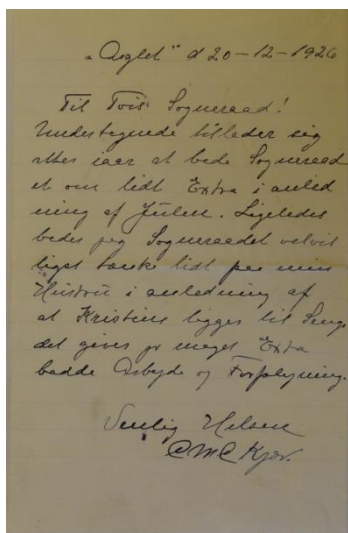 "Asylet" d 20-12-1926
Til Tvis Sogneraad!
Undertegnede tilleder sig
atter iaar at bede Sogneraad
et om lidt Extra i anled
ning af Julen. Ligeledes
bedes jeg Sogneraadet velvil
ligst tænke lidt paa min
Hustru i anledning af
at Kristine ligger til Seng.
det giver jo meget Extra
baade Arbejde og Forplejning.
Venlig Hilsen
CMC Kjær.